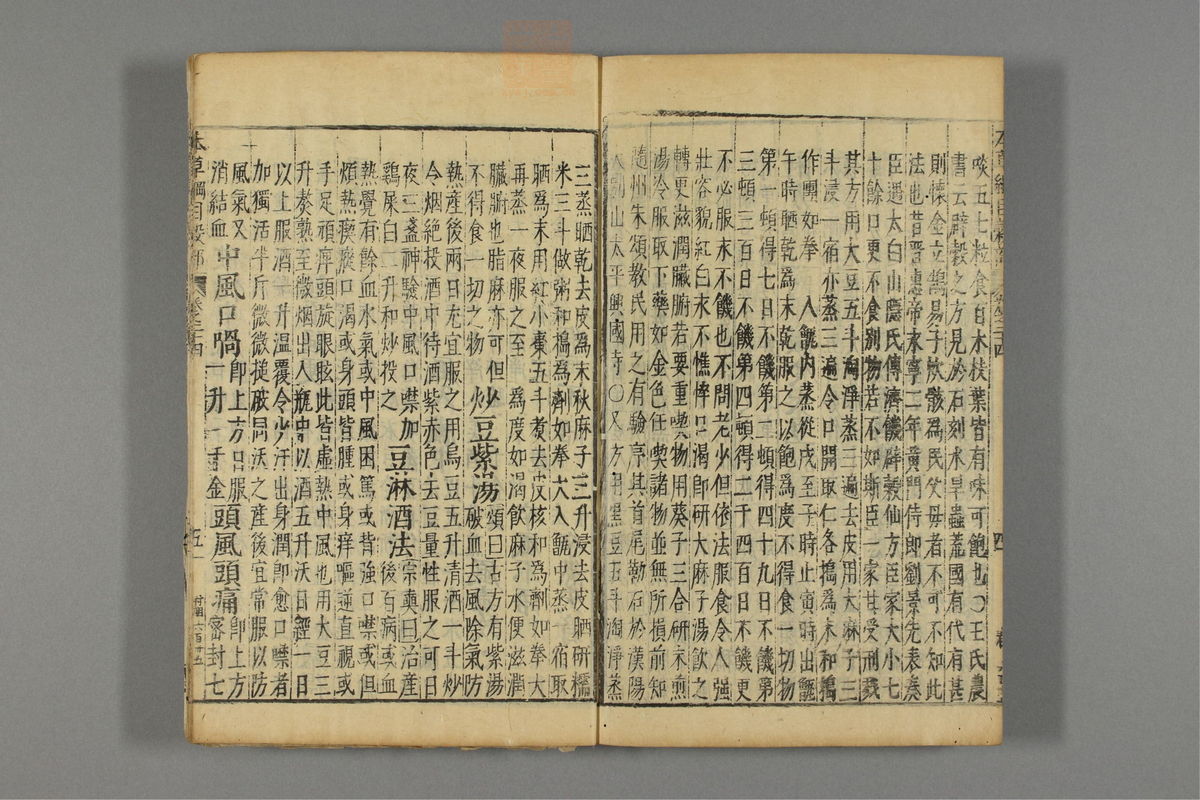 啖五七粒食白水枝葉皆有味可飽也○王氏農
書云辟穀之方見於石刻水旱蟲荒國有代有甚
則懷金立鵠易子炊骸為民父母者不可不知此
法也昔晋惠帝永寧二年黄門侍郎劉景先表奏
臣遇太白山隱氏傳濟饑辟穀仙方臣家大小七
十餘口更不食别物若不如斯臣一家甘受刑戮
其方用大豆五斗淘淨蒸三遍去皮用大麻子三
斗浸一宿亦蒸三遍令口開取仁各搗為末和搗
作團如拳 入甑内蒸從戌至子時止寅時出甑
午時晒乾為末乾服之以飽為度不得食一切物
第一頓得七日不饑第二頓得四十九日不饑第
三頓三百日不饑第四頓得二千四百日不饑更
不必服永不饑也不問老少但依法服食令人强
壯容貌紅白永不憔悴口渴即研大麻子湯飲之
轉更滋潤臟腑若要重喫物用葵子三合研末煎
湯冷服取下藥如金色任喫諸物並無所損前知
隨州朱頌教民用之有驗序其首尾勒石於漢陽
大别山太平興國寺○又方用黑豆五斗淘淨蒸
三蒸晒乾去皮為末秋麻子三升浸去皮晒研糯
米三斗做粥和搗為劑如拳大入甑中蒸一宿取
晒為末用紅小棗五斗煮去皮核和為劑如拳大
再蒸一夜服之至 為度如渴飲麻子水便滋潤
臟腑也脂麻亦可但
不得食一切之物 炒豆紫湯 頌曰古方有紫湯
破血去風除氣防
熱產後兩日尤宜服之用烏豆五升清酒一斗炒
令烟絶投酒中待酒紫赤色去豆量性服之可日
夜三盞神驗中風口噤加
鷄屎白二升和炒投之 豆淋酒法 宗奭曰治産
後百病或血
熱覺有餘血水氣或中風困篤或背強口噤或但
煩熱瘈瘲口渴或身頭皆腫或身痒嘔逆直視或
手足頑痺頭旋眼眩此皆虛熱中風也用大豆三
升熬熟至微烟出入瓶中以酒五升沃日經一日
以上服酒一升温覆令少汗出身潤即愈口噤者
加獨活半斤微微搥破同沃之産後宜常服以防
風氣又
消結血 中風口喎 即上方日服
一升 頭風頭痛 即上方
密封七